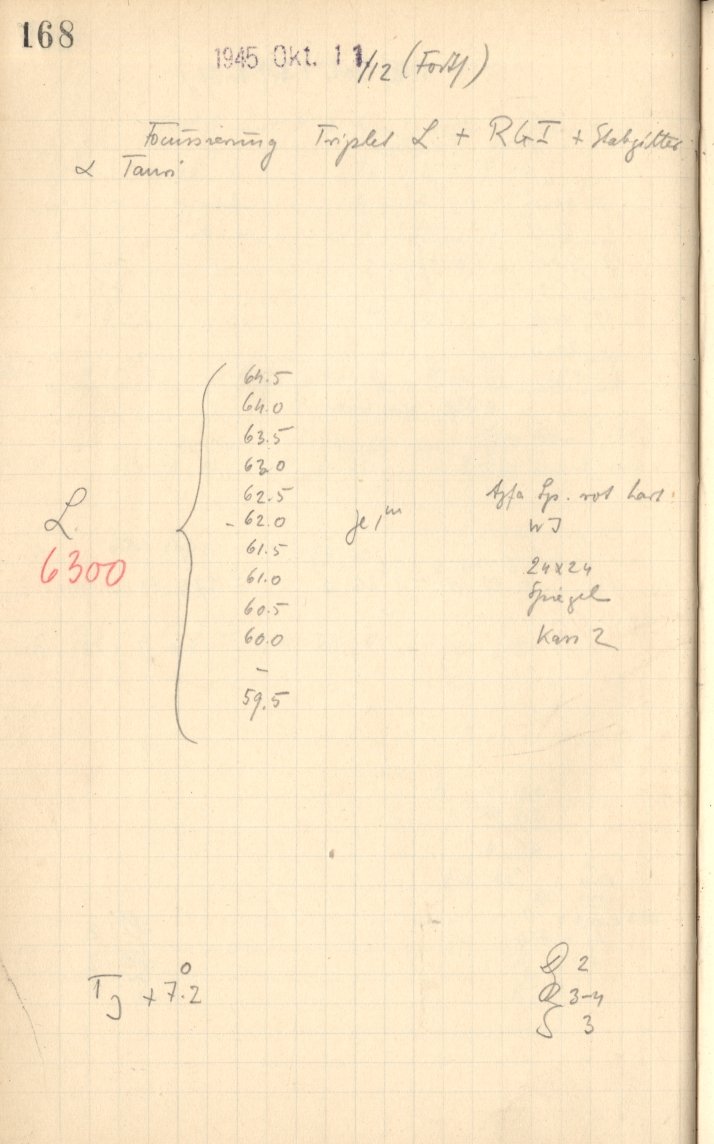 168
1945 Okt. 11./12 (Forts.)
Focussierung Triplet L + RGI + Stabgitter
α Tauri
64.5
64.0
63.5
63.0
62.5
- 62.0
61.5
61.0
60.5
60.0
-
59.5
L
6300
je 1m
Agfa Sp. rot hart
24x24
Spiegel
Kass 2
TJ + 7.°2
2
Q 3-4
S 3